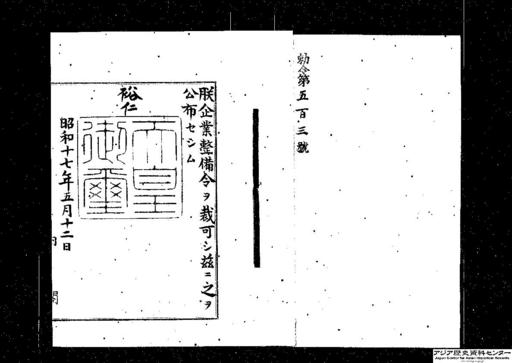 勅令第五百三號
朕企業整備令ヲ裁可シ茲ニ之ヲ
公布セシム
裕仁
天皇御璽
昭和十七年五月十二日
アジア歴史資料センター
Japan Center for Asian Historical Records